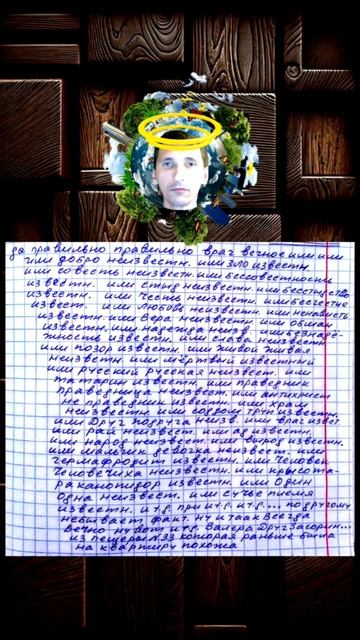 да правильно правильно враг вечное или или
или добро неизвестн. или зло известн
или совесть неизвестн. или бессовестность
известн. или стыд неизвестн или бесстыдство
известн. или честь неизвестн или бесчестие
извест. или любовь неизвестн. или ненависть
известн. или вера неизвестн. или обман
известн. или надежда неизв. или безнадё-
жность извести. или слава неизвестн
или позор известн. или живой живая
неизвестн или мёртвый известный
или русский русская неизвест. или
татарин известн. или праведник
праведница неизвест. или антихрист
не праведник известн. или храм
неизвестн. или содом труп известн.
или Друг подруга неизв. или враг извест
или рай неизвестн. или ад известн.
или народ неизвест. или выброд известн.
или мальчик девочка неизвест. или
гермафродит известн. или человек
человечиха неизвестн. или крысота-
раканопидор известн. или один
одна неизвест. или сучье племя
известн. и т.д. при и т.д. и т.д... по другому
небывает факт. ну и так всегда
вечно ну вот и т.д. Валера Друг Загорин...
из пещеры №33 которая раньше была
на квартиру похожа